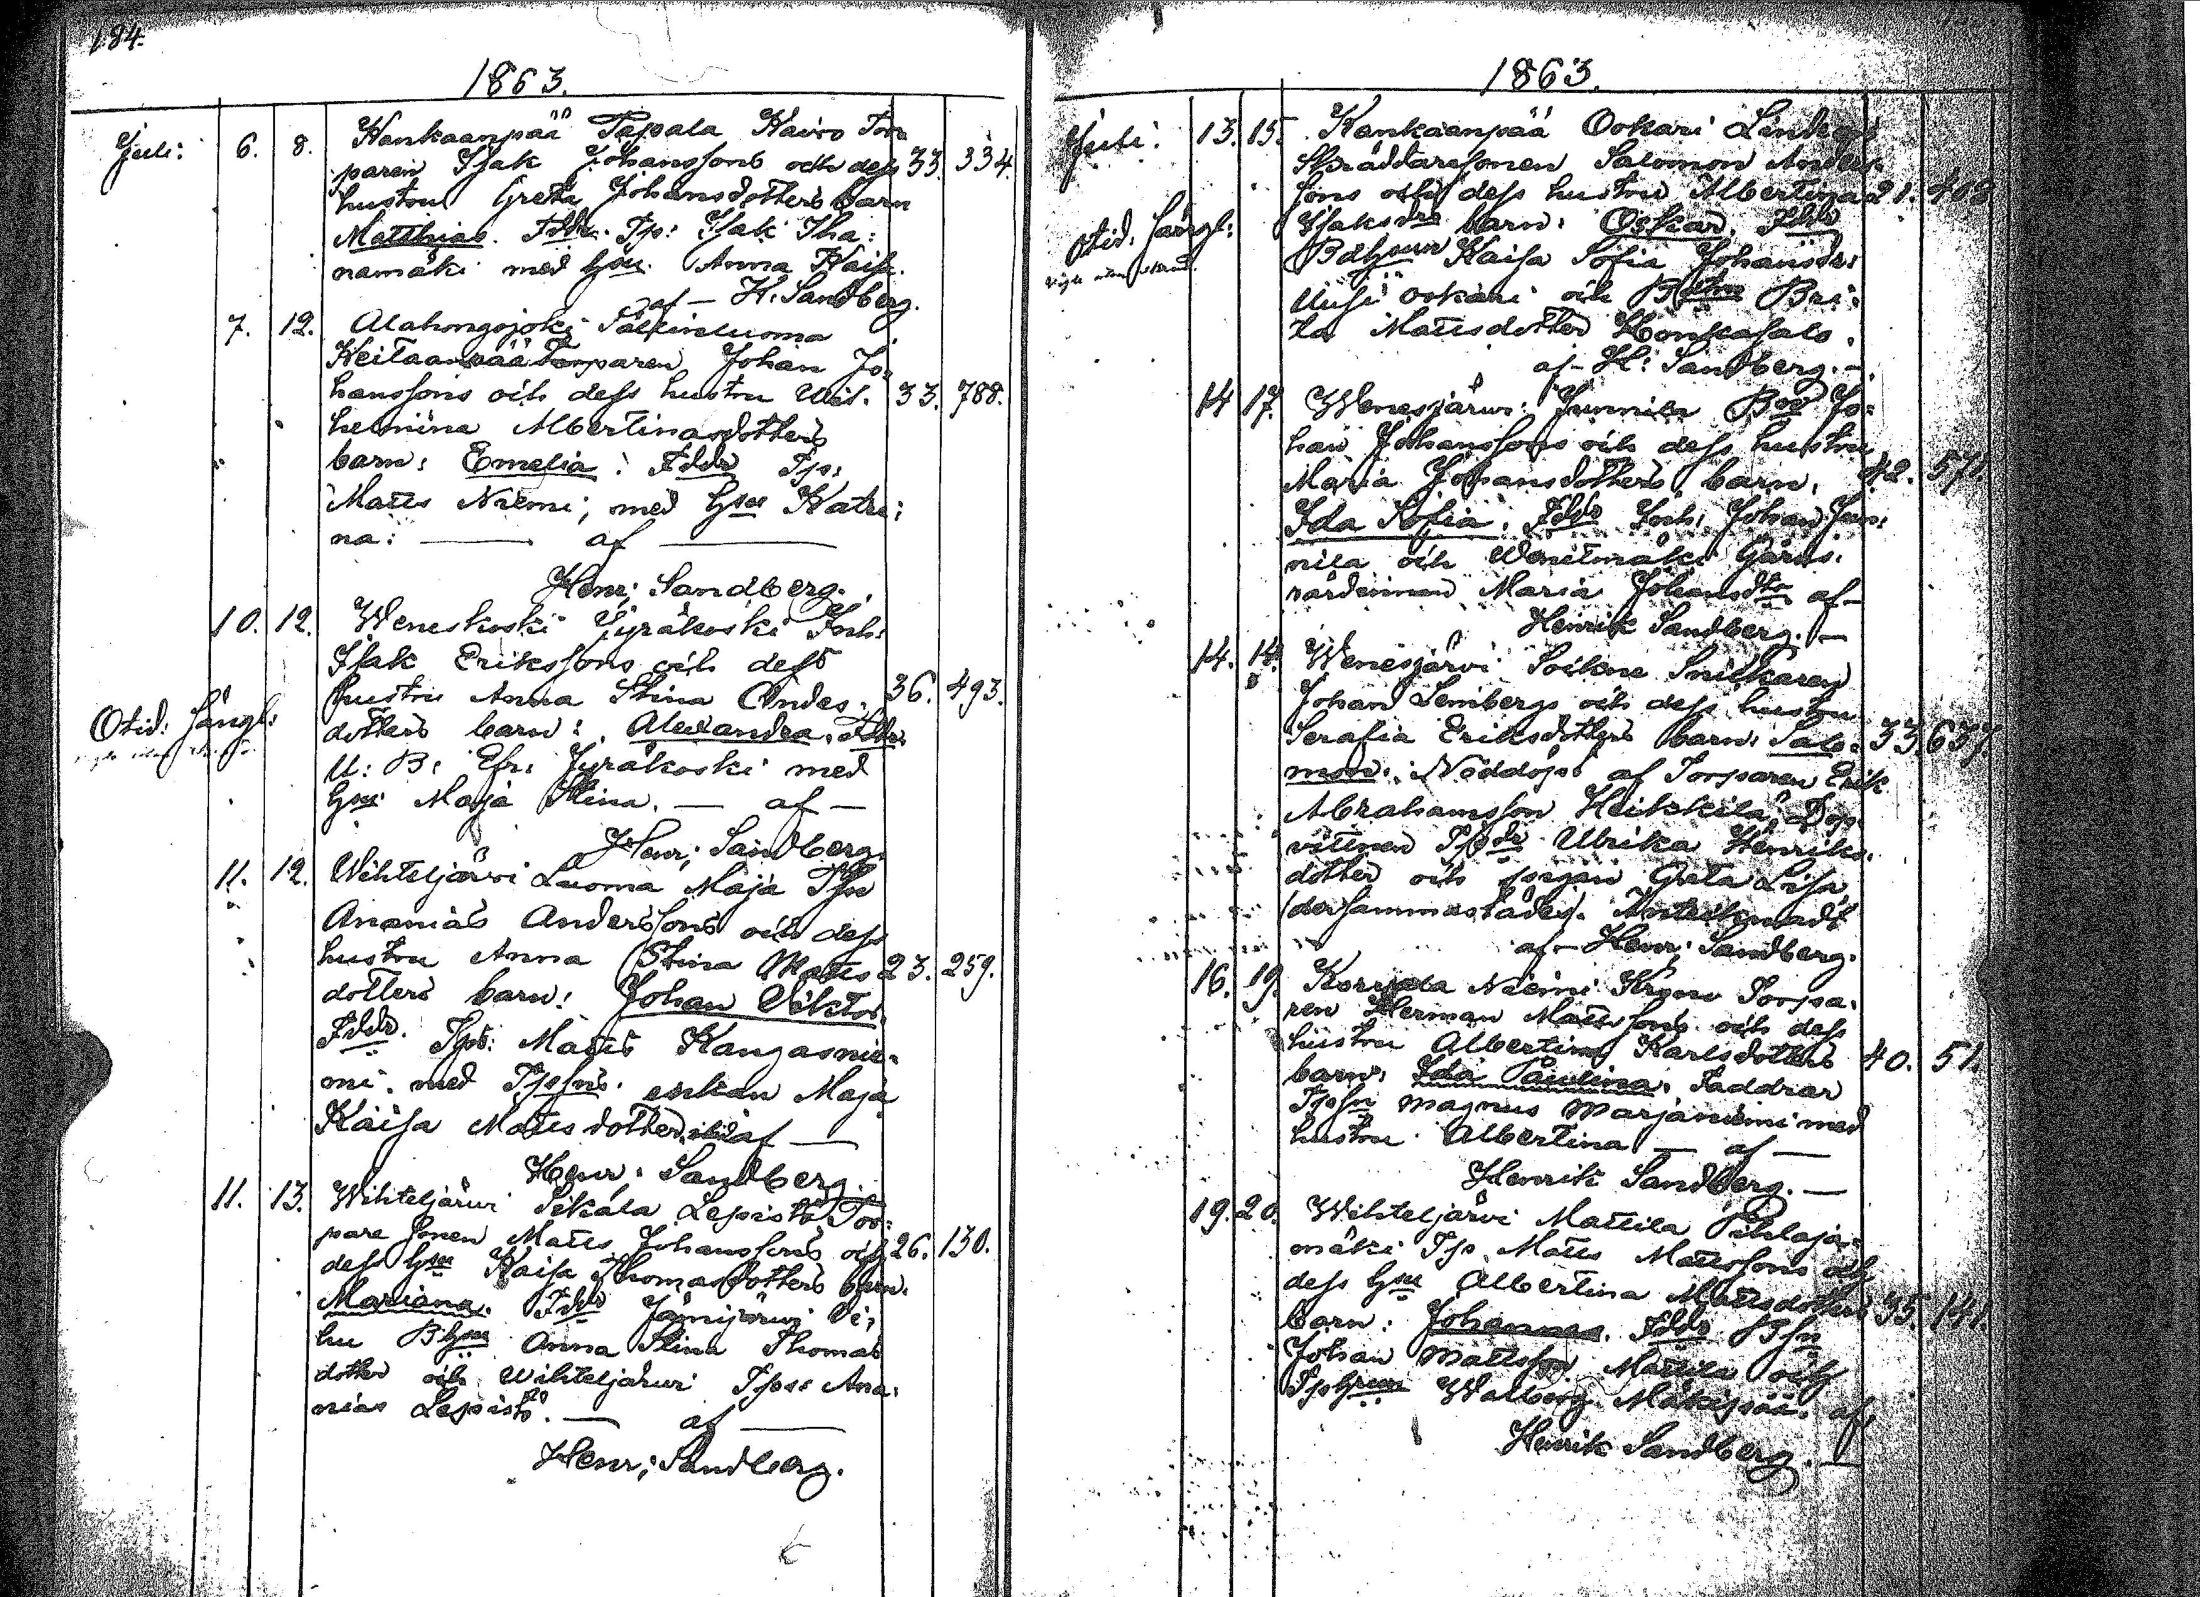 184.
1863.
Juli: 6. 8. Kankaanpää Tapala Kairo Tor
paren Isak Johanssons och dess 33. 334.
hustru Greta Johansdotters barn
Matthias. Fddr. Tp: Isak Iha:
namäki med hsu. Anna Kaisa.
af — H. Sandberg.
7. 12. Alahongojoki
Keitaanpää Torparen Johan Jo-
hanssons och dess hustru Wil- 33. 788.
helmina Albertinasdotters
barn: Emelia: Fddr Tp:
Matts Niemi, med hsu Katri:
na: — af —
Henr: Sandberg.
10. 12. Weneskoski Jyräkoski Inh:
Isak Erikssons och dess
hustru Anna Stina Andes- 36. 493.
Otid: Sängl:
dotters barn: Alexandra. Fddr.
U: B: Efr: Jyräkoski med
hsu: Maja Stina. — af —
Henr: Sandberg.
11. 12. Wihteljärvi Luoma Maja Tpn
Ananias Anderssons och dess
hustru Anna Stina Matts 23. 259.
dotters barn: Johan Viktor.
Fddr. Tps: Matts Kangasnie-
mi. med Tpsns. enkan Maja
Kaisa Mattsdotter, ibid af —
Henr: Sandberg.
11. 13. Wihteljärwi Sikala Lepistö Tor-
pare sonen Matts Johanssons och 26. 130.
dess hsu Kaisa Thomasdotters barn.
Mariana. Fddr Jämijärwi Vi:
hu Bhsu Anna Stina Thomas
dotter och Wihteljärwi Tps: Ana:
nias Lepistö. — af —
Henr: Sandberg.
1863.
Juli: 13. 15. Kankaanpää Ookari
Skräddaresonen Salomon Anders-
sons och dess hustru Albertina 21. 408
Otid. Sängl:
Isaksdrs barn: Oskar. Fddr
Kaisa Sofia Johansdr:
Uusi Ookari och Bri:
ta Mattsdotter Honkasalo.
af — H: Sandberg. —
14 17. Wenesjärwi: Junnila Bos Jo-
han Johanssons och dess hustru
Maria Johansdotters barn, 42. 571.
Ida Sofia. Fddr Inh: Johan Jun:
nila och Wenetmäki Gårds-
värdinnan Maria Johansdtr af —
Henrik Sandberg. —
14. 14. Wenesjärvi Soikne Snickaren
Johan Lembergs och dess hustru
Serafia Eriksdotters barn: Salo- 33. 637.
mon. Nöddöpt af Torparen Erik
Abrahamsson Heikkilä, Dop
vittnen Ulrika Henriks-
dotter och pigan Greta Lisa
(dersammastädes). Antecknadt
af — Henr: Sandberg.
16. 19. Korvela Niemi Krono Torpa-
ren Herman Mattssons och dess
hustru Albertina Karlsdotters 40. 51.
barn: Ida Paulina. Faddrar
Tpsn Magnus Marjaniemi med
hustru Albertina — af —
Henrik Sandberg. —
19. 20. Wihteljärvi Mattila Pihlaja-
mäki Tp. Matts Mattssons och
dess hsu Albertina Mattsdotters 35. 141.
barn: Johannes. Fddr Bsn
Johan Mattsson Mattila och
Walborg Mäkipää. af,
Henrik Sandberg. —